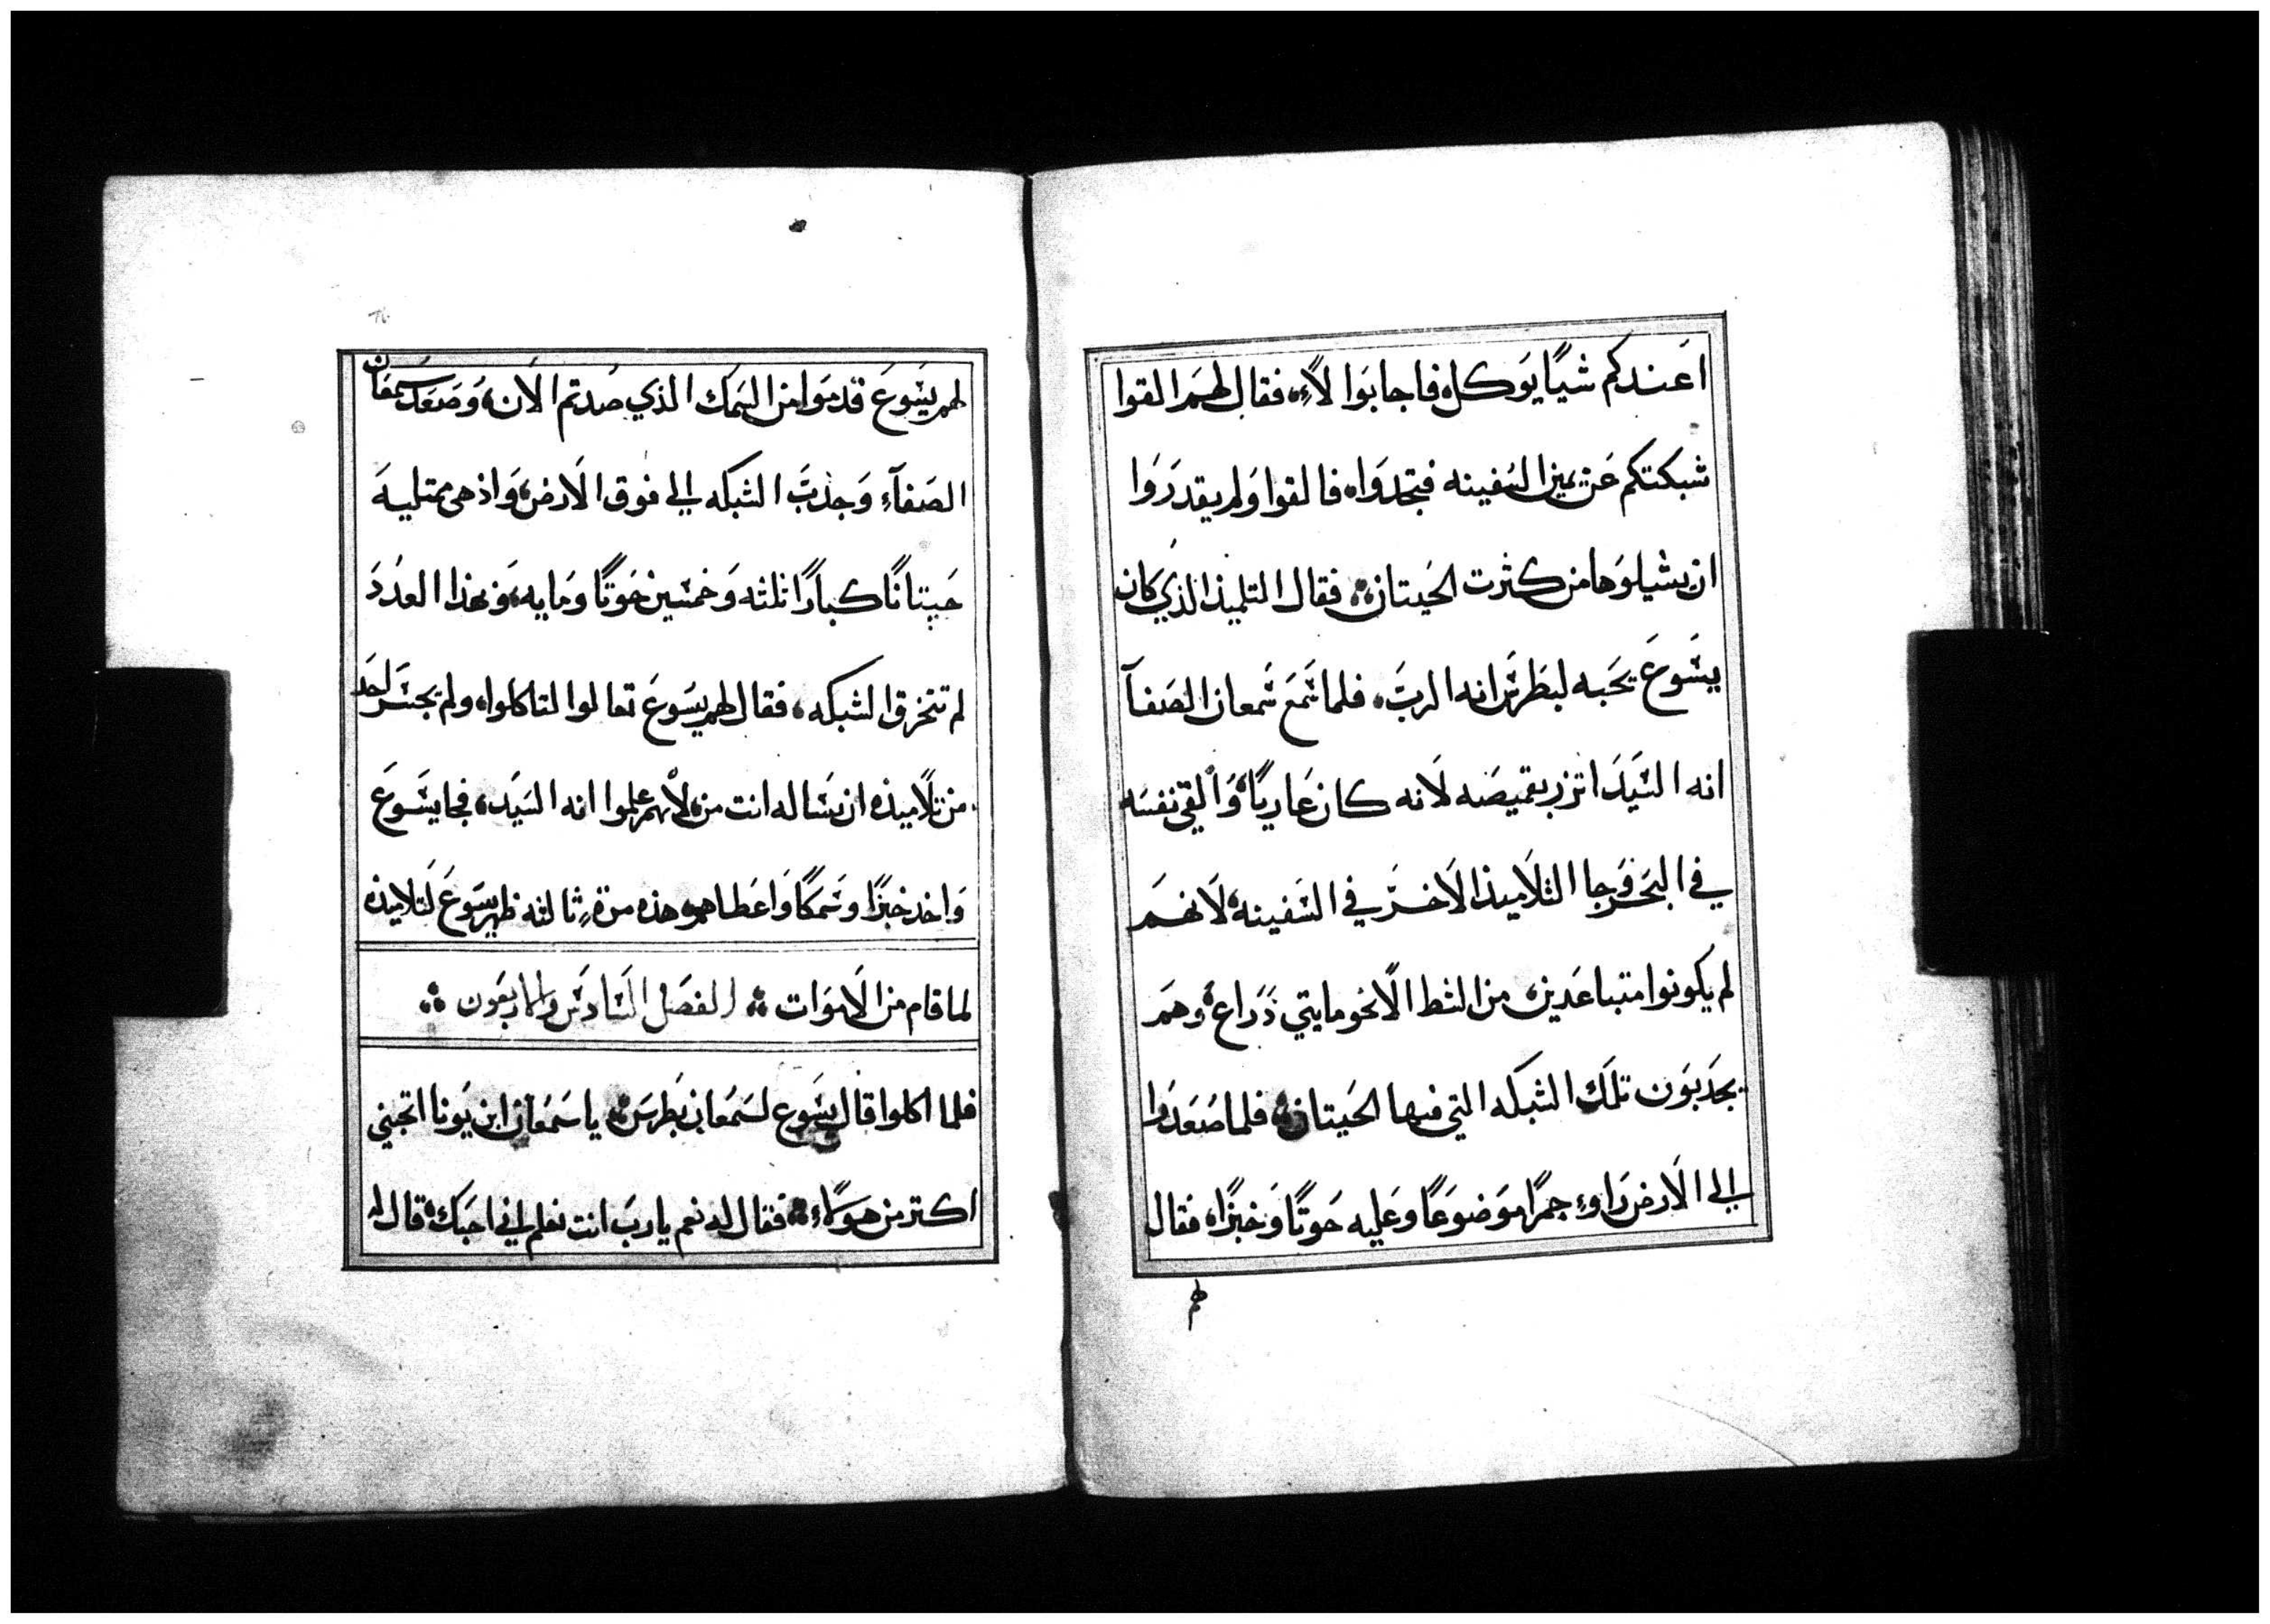 اَعَندكم شيًا يوَكل، فاجابَوا لاً، فقال لهمَ القوا
شبكتكم عَن يمين السَفينه فتجدوَا، فالقوا وَلم يقدرَوا
ان يشيلوَها من كثرت الحَيتان، فقال التلميذ الذي كان
يسَوعَ يحَبه لبطَرسَ انه الربَ، فلما سَمعَ سَمعان الصَفآ
انه السَيَدَ اتزر بقميصَه لاَنه كان عَارياً، وَألقي نفسَه
في البحَر وَجا التلاَميذ الاَخرَ في السَفينه، لاَنهمَ
لم يكونوا متباعَدين، من الشط الاَ نحو مايتي ذراع، وهمَ
يجدَبوَن تلَك الشبكه التي فيها الحَيتان، فلما صَعَدوَا
الي الاَرض رَاوَءِ جمرًا موَضوَعًا وعَليه حَوتًا وَخبزًا، فقال
لهم
لهم يسَوعَ قدموَا من السَمَك الذي صُدتم الاَن، وَصَعَدَ سمعَان
الصَفآءِ وَجذبَ الشبكه الي فوق الاَرض، وَاذ هى ممتليهَ
حَيتانًا كبارًا ثلثه وَخمسَين حَوتًا ومَايه، وَبهذا العدُدَ
لم تنخرق الشبكه، فقال لهم يسَوعَ تعالوا لتاكلوا، ولم يجسَرَ احَد
من تلاَميذه ان يسَاله انت من، لأنهم علموا انه السَيَد، فجا يسَوعَ
وَاخد خبزًا وسَمَكًا وَاعَطاهم، هذه مرة ثالثه ظهر يسَوعَ لتلاميذه
لما قام من الاَموَات ؞ الفصَل السَادسَ والاربعَون ؞
فلما اكلوا قال يسَوع لسَمعَان بَطرسَ، يا سَمعَان ابن يَونا اتحبني
اكتر من هوَلاًءِ، فقال له نعم يا ربَ انت تعلم اني احَبَك، قال له